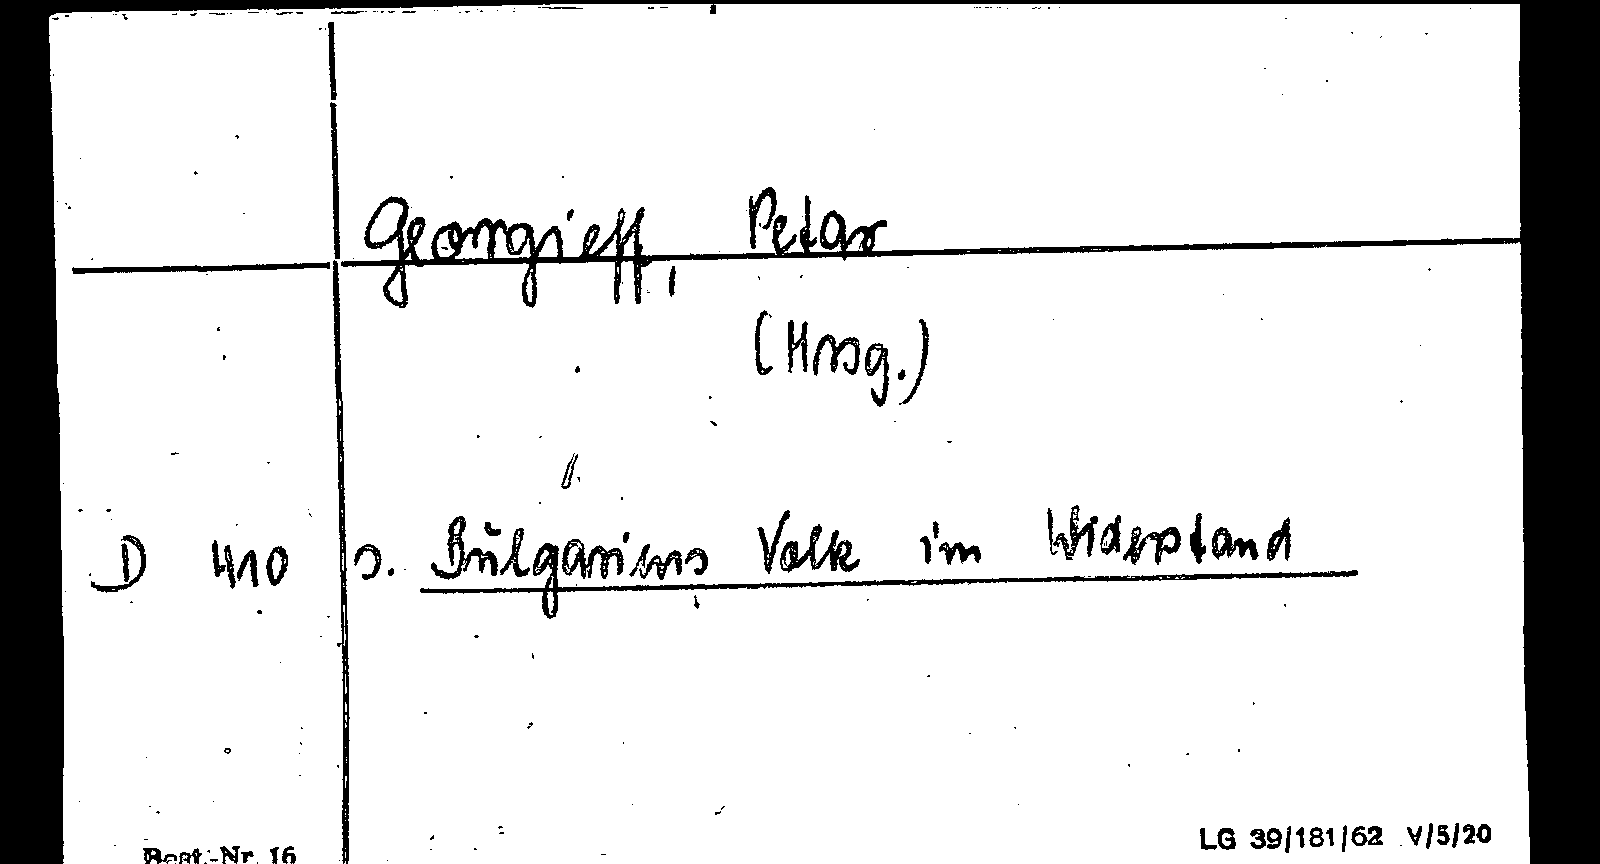 Georgieff, Petar
(Hrsg.)
D 410 s. Bulgariens Volk im Widerstand
Best.-Nr. 16
LG 39/181/62 V/5/20